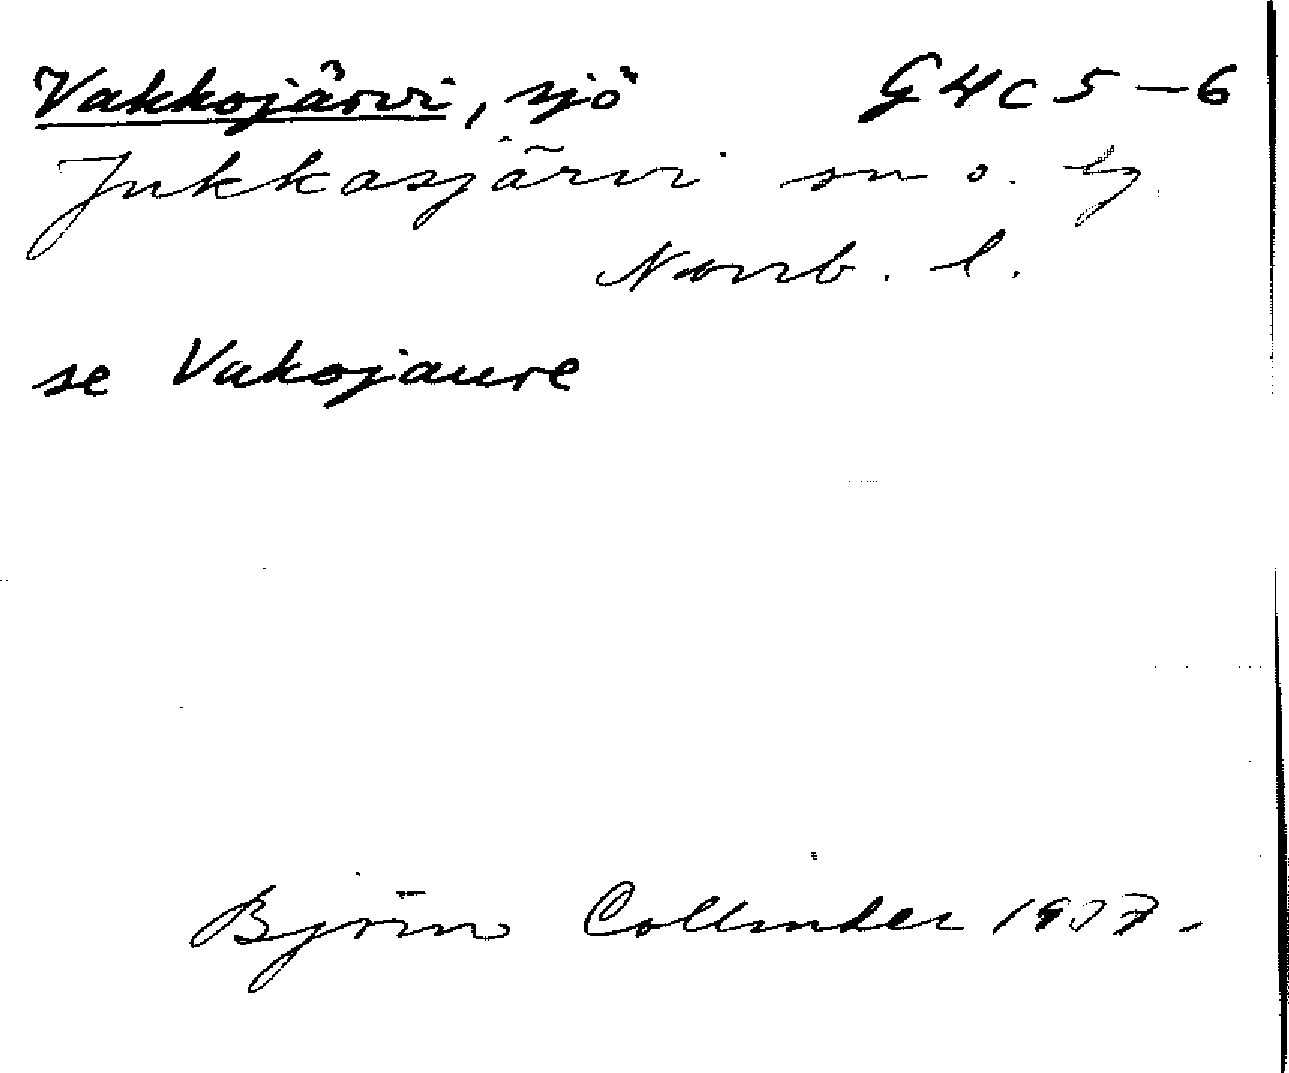 Vakkojärvi, sjö G4c 5-6
Jukkasjärvi sn o. tg
Norrb. l.
se Vakojaure
Björn Collinder